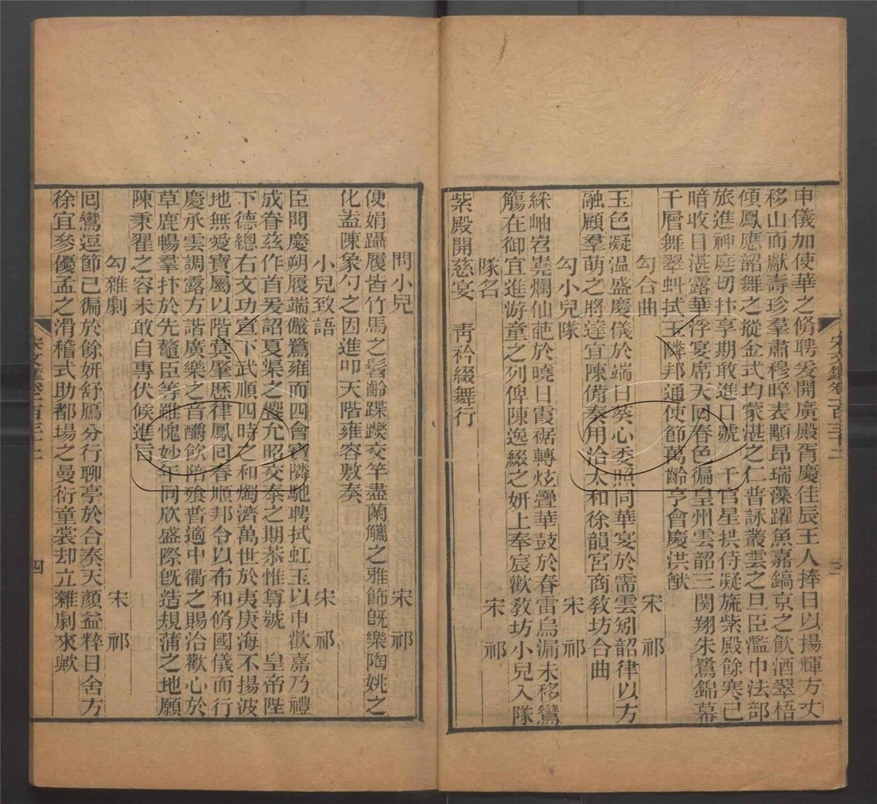 申儀加使華之脩聘爰開廣殿胥慶佳辰王人捧日以揚輝方丈
移山而獻壽珍羣肅穆晬表顒昂瑞藻躍魚嘉鎬京之飮酒翠梧
傾鳳應韶舞之摐金式均蒙湛之仁普詠叢雲之旦臣濫巾法部
旅進神庭切抃亨期敢進口號　千官星拱侍凝旒紫殿餘寒已
暗收日湛露華浮宴席天回春色徧皇州雲韶三闋翔朱鷺錦幕
千層舞翠虯拭玉隣邦通使節萬齡亨會慶洪猷
勾合曲　宋祁
玉色凝温盛慶儀於端日葵心委照同華宴於需雲矧韶律以方
融顧羣萌之將達宜陳備奏用洽太和徐韻宮商敎坊合曲
勾小兒隊　宋祁
綵岫岧嶤爛仙葩於曉日霞裾轉炫疊華鼓於春雷烏漏未移鸞
觴在御宜進游童之列俾陳逸綴之妍上奉宸歡敎坊小兒入隊
隊名　宋祁
紫殿開慈宴　靑衿綴舞行
宋文鑑卷一百三十二
三
問小兒　宋祁
便娟躡履皆竹馬之髫齡踝躞交竿盡蘭觿之雅飾旣樂陶姚之
化盍陳象勺之因進叩天階雍容敷奏
小兒致語　宋祁
臣聞慶朔履端儼鷺雍而四會賓隣馳聘拭虹玉以申歡嘉乃禮
成眷兹作首爰詔夏渠之饗允昭交泰之期恭惟尊號　皇帝陛
下德總右文功宣下武順四時之和燭濟萬世於夷庚海不揚波
地無愛寶屬以階蓂肇歴律鳳同春順邦令以布和脩國儀而行
慶承雲調露方諧廣樂之音釂飮陪飱普適中衢之賜治歡心於
草鹿暢羣抃於先鼇臣等雖愧妙年同欣盛際旣造規蒲之地願
陳秉翟之容未敢自專伏候進旨
勾雜劇　宋祁
囘鸞逗節已徧於餘妍舒鴈分行聊亭於合奏天顔益粹日舍方
徐宜參優孟之滑稽式助都場之曼衍童裳却立雜劇來歟
宋文鑑卷一百三十二
四